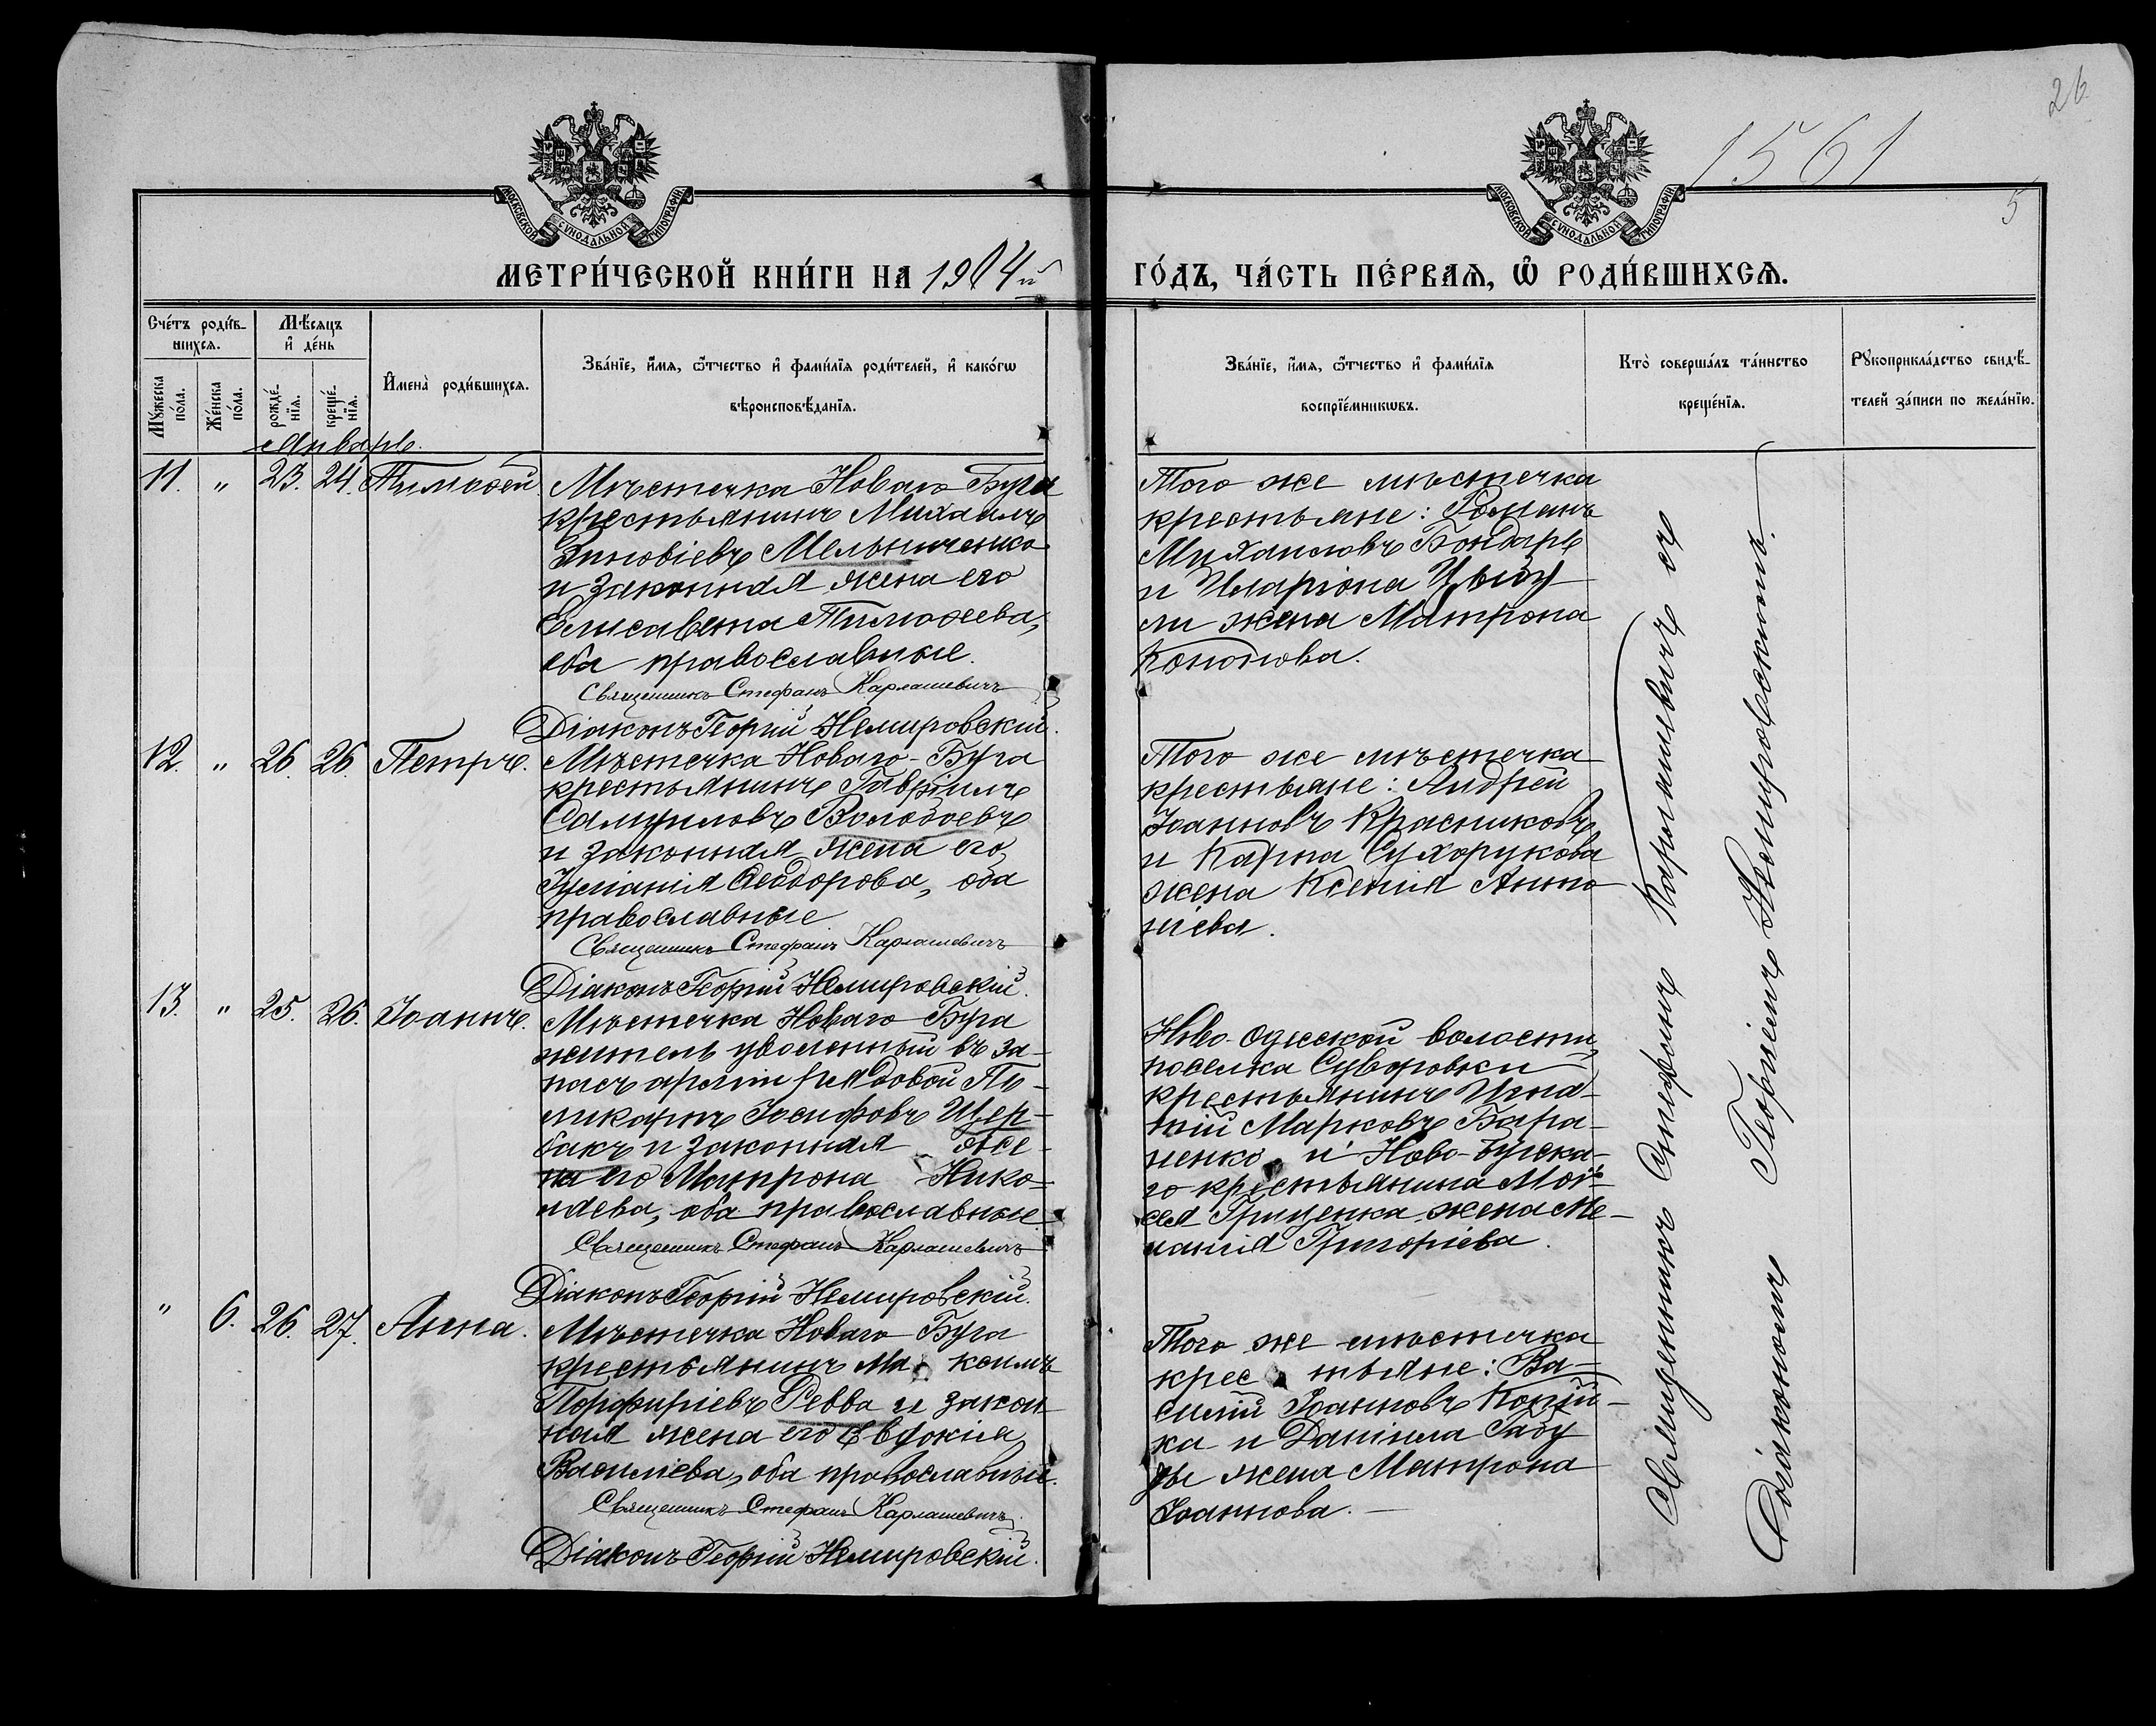 26.
1561
5
МОСКОВСКОЙ СѴНОДАЛЬНОЙ ТИПОГРАФІИ
МОСКОВСКОЙ СѴНОДАЛЬНОЙ ТИПОГРАФІИ
МЕТРИ́ЧЕСКОЙ КНИ́ГИ НА 1904й
ГО́ДЪ, ЧА́СТЬ ПЕ́РВАѦ, Ѽ РОДИ́ВШИХСѦ.
Сче́тъ роди́в-
шихсѧ.
Мꙋ́жеска
по́ла.
Же́нска
по́ла.
Мѣ́сѧцъ
и҆ де́нь
рожде́-
нїѧ.
креще́-
нїѧ.
И҆мена̀ роди́вшихсѧ.
Зва́нїе, и҆́мѧ, ѻ҆́тчество и҆ фами́лїѧ роди́телей, и҆ како́гѡ
вѣроисповѣ́данїѧ.
Зва́нїе, и҆́мѧ, ѻ҆́тчество и҆ фами́лїѧ
воспрїе́мникѡвъ.
Кто̀ соверша́лъ та́инство
креще́нїѧ.
Рꙋкоприкла́дство свидѣ́-
телей за́писи по жела́нїю.
Январь.
11. " 23. 24. Тимоѳей
Мѣстечка Новаго Буга
крестьянинъ Михаилъ
Зиновіевъ Мельниченко
и законная жена его
Елисавета Тимоѳеева,
оба православные.
Священникъ Стефанъ Карлашевичъ
Діаконъ Георгій Немировскій.
Того же мѣстечка
крестьяне: Романъ
Михаиловъ Бондарь
и Иларіона Цыбу
ли жена Матрона
Кононова.
12. " 26. 26. Петръ.
Мѣстечка Новаго-Буга
крестьянинъ Гавріилъ
Самуиловъ Володоевъ
и законная жена его
Іуліанія Ѳеодорова, оба
православные.
Священникъ Стефанъ Карлашевичъ
Діаконъ Георгій Немировскій.
Того же мѣстечка
крестьяне: Андрей
Іоанновъ Красниковъ
и Карпа Сухорукова
жена Ксенія Анто
ніева.
13. " 25. 26. Іоаннъ.
Мѣстечка Новаго Буга
житель уволенный въ за-
пасъ арміи рядовой По-
ликарпъ Іосифовъ Щер-
бакъ и законная же-
на его Матрона Нико-
лаева, оба православные
Священникъ Стефанъ Карлашевичъ
Діаконъ Георгій Немировскій.
Ново-Одесской волости,
поселка Суворовки
крестьянинъ Игна-
тій Марковъ Бара-
ненко и Ново-Бугска-
го крестьянина Мой-
сея Гриценка жена Ме-
ланія Григоріева.
" 6. 26. 27. Анна.
Мѣстечка Новаго Буга
крестьянинъ Ма ксимъ
Порфиріевъ Ревва и закон
ная жена его Евдокія
Василіева, оба православные.
Священникъ Стефанъ Карлашевичъ
Діаконъ Георгій Немировскій.
Того же мѣстечка
крес тьяне: Ва-
силій Іоанновъ
ка и Даніила
жена Матрона
Іоаннова.
Священникъ Стефанъ Карлашевичъ съ
Діакономъ Георгіемъ Немировскимъ.